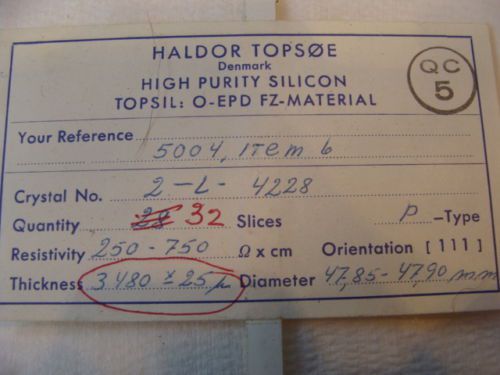 HALDOR TOPSØE
Denmark
HIGH PURITY SILICON
TOPSIL: O-EPD FZ-MATERIAL
QC
5
Your Reference 5004, ITEM 6
Crystal No. 2-L- 4228
Quantity 28 32 Slices P -Type
Resistivity 250 - 750 Ω x cm Orientation [111]
Thickness 3480 ± 25 μ Diameter 47,85 - 47,90 mm